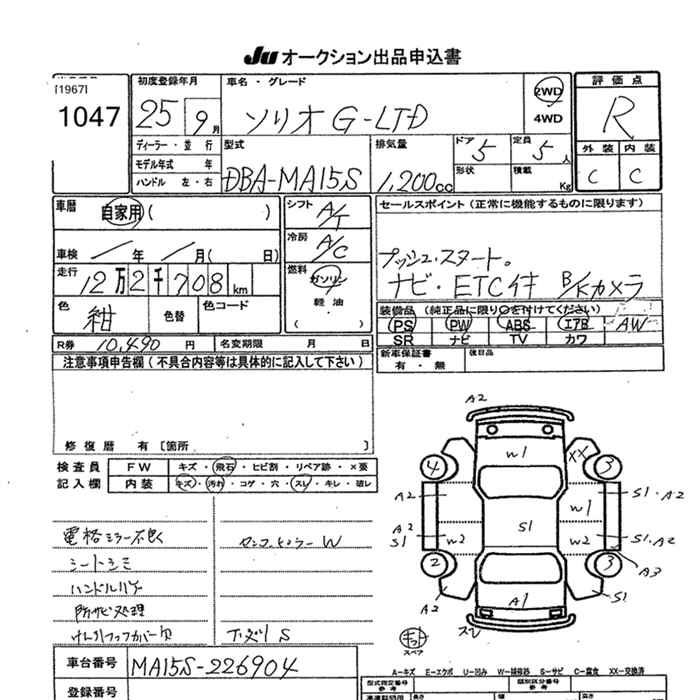 JU オークション出品申込書
[1967]
1047
初度登録年月
25 9月
車名・グレード
ソリオ G-LTD
2WD
4WD
評価点
R
外装 内装
C C
ディーラー・並行
モデル年式 年
ハンドル 左・右
型式
DBA-MA15S
排気量
1,200cc
ドア 5
形状
定員 5人
積載 Kg
車歴 自家用( )
シフト A/T
車検 年 月( 日)
冷房 A/C
走行 12万2千708km
燃料 ガソリン
軽油
( )
色 紺 色替 色コード
R券 10,490円 名変期限 月 日
セールスポイント(正常に機能するものに限ります)
プッシュ・スタート。
ナビ・ETC付 B/Kカメラ
装備品(純正品に限り○を付けてください)
PS PW ABS エアB AW
SR ナビ TV カワ
新車保証書 後日品
有・無
注意事項申告欄(不具合内容等は具体的に記入して下さい)
修復歴 有[箇所 ]
検査員 FW キズ・飛石・ヒビ割・リペア跡・×要
記入欄 内装 キズ・汚れ・コゲ・穴・スレ・キレ・ホレ
電格ミラー不良
シートシミ
ハンドルハゲ
防サビ処理
W
下ズリ S
A2
W1
4
XX
3
A2
W1
S1・A2
A2
S1
W2
S1
W2
S1・A2
2
3
A3
A2
A1
S1
スレ
キット
スペア
A-キズ E-エクボ U-凹み W-補修跡 S-サビ C-腐食 XX-交換済
車台番号 MA15S-226904
登録番号
型式指定番号
参考
類別区分番号
参考